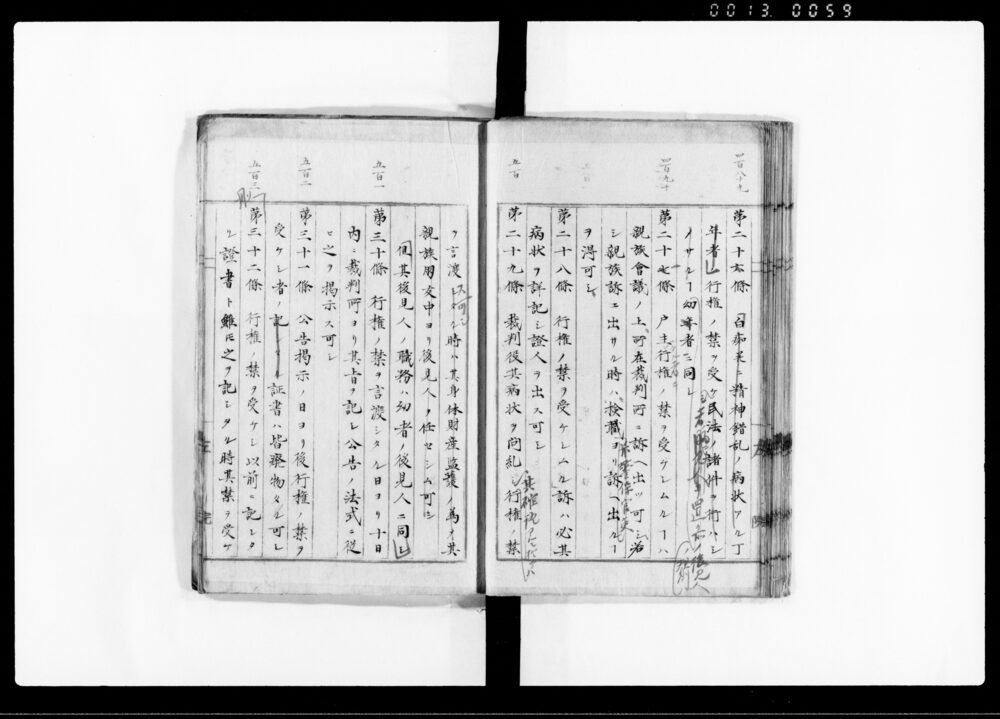 0013 0059
四百八十九
第二十六條 白痴並ニ精神錯乱ノ病状アル丁
年者ハ行権ノ禁ヲ受ケ民法ノ諸件ヲ行ハシ
メサルヿ幼年者ニ同シ
四百九十
第二十七條 戸主行権ノ禁ヲ受ケシムルヿハ
親族會議ノ上所在裁判所ニ訴ヘ出ツ可シ若
シ親族訴エ出サル時ハ検職ヨリ訴ヘ出ルヿ
ヲ得可シ
第二十八條 行権ノ禁ヲ受ケシムル訴ハ必其
病状ヲ詳記シ證人ヲ出ス可シ
五百
第二十九條 裁判役其病状ヲ問乱シ行権ノ禁
ヲ言渡シタル時ハ其身体財産監護ノ為メ其
親族朋友中ヨリ後見人ヲ任セシム可シ
但其後見人ノ職務ハ幼者ノ後見人ニ同シ
五百一
第三十條 行権ノ禁ヲ言渡シタル日ヨリ十日
内ニ裁判所ヨリ其旨ヲ記シ公告ノ法式ニ従
ヒ之ヲ掲示ス可シ
五百二
第三十一條 公告掲示ノ日ヨリ後行権ノ禁ヲ
受ケシ者ノ記シタル証書ハ皆廃物タル可シ
五百三
刪
第三十二條 行権ノ禁ヲ受ケシ以前ニ記シタ
ル證書ト雖モ之ヲ記シタル時其禁ヲ受ケ